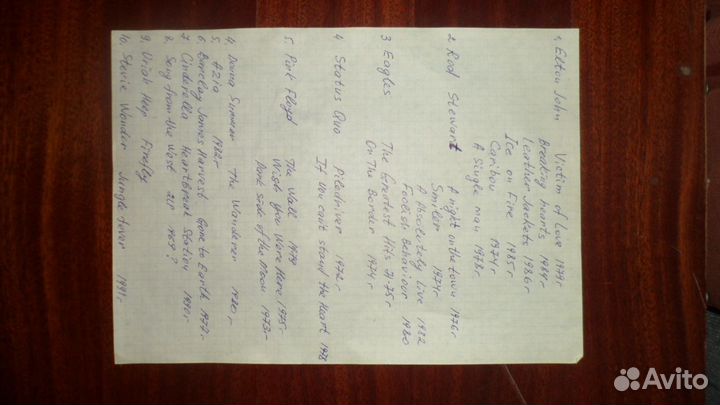 1. Elton John Victim of Love 1979г
Breaking hearts 1984г
Leather Jackets 1986г
Ice on Fire 1985г
Caribou 1974г
A Single man 1978г
2 Rod Stewart A night on the town 1976г
Smiler 1974г
A Absolutely Live 1982
Foolish Behaviour 1980
3 Eagles The Greatest Hits 71-75г
On The Border 1974г
4 Status Quo Piledriver 1972г
If You can't stand the Heart 1978
5. Pink Floyd The Wall 1979
Wish You Were Here 1975г
Dark side of the Moon 1973г
4. Donna Summer The Wanderer 1980г
5. Azia 1982г
6 Barclay James Harvest Gone to Earth 1977г
7 Cinderella Heartbreak Station 1990г
8. Song from the West 1959?
9. Uriah Heep Firefly
10. Stevie Wonder Jungle fever 1991г.
Avito